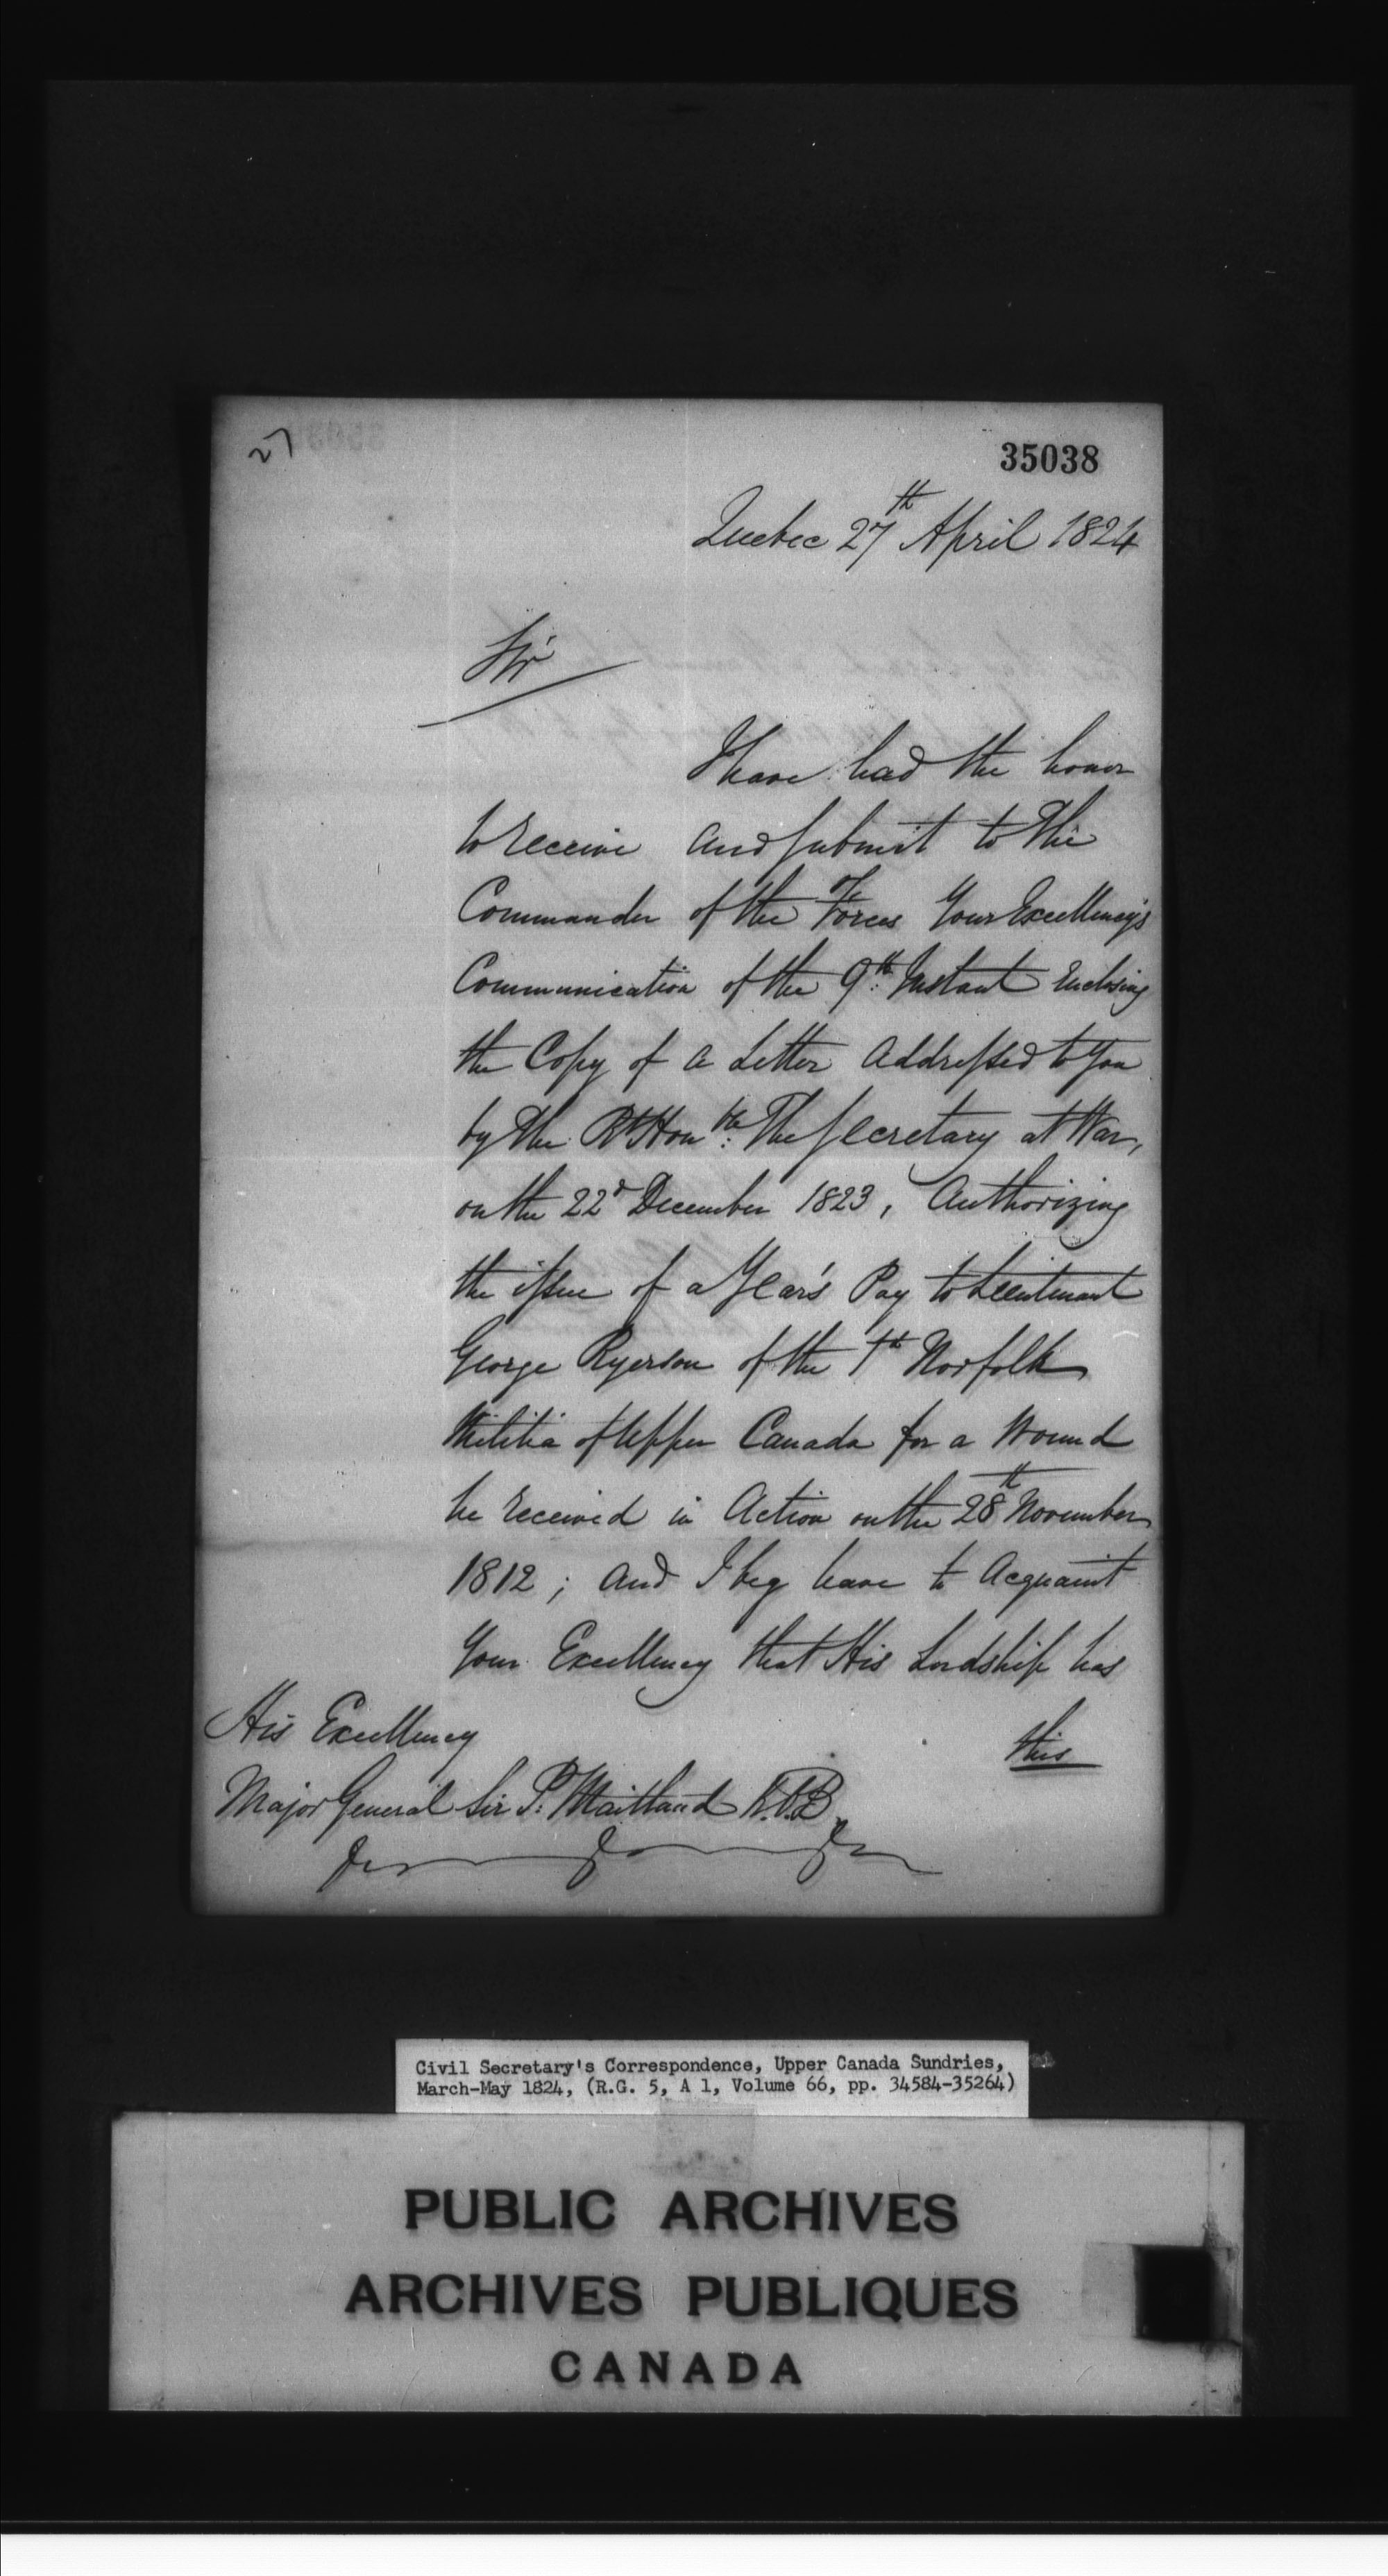 27
35038
Quebec 27th April 1824
Sir
I have had the honor
to receive and submit to the
Commander of the Forces Your Excellency's
Communication of the 9th: Instant Enclosing
the Copy of a Letter Addressed to You
by The Rt Honble: The Secretary at War,
on the 22d December 1823, Authorizing
the issue of a Year's Pay to Lieutenant
George Ryerson of the 1st Norfolk
Militia of Upper Canada for a Wound
he received in Action on the 28th November
1812; and I beg leave to Acquaint
Your Excellency that His Lordship has
this
His Excellency
Major General Sir P: Maitland K.C.B
Civil Secretary's Correspondence, Upper Canada Sundries,
March-May 1824, (R.G. 5, A 1, Volume 66, pp. 34584-35264)
PUBLIC ARCHIVES
ARCHIVES PUBLIQUES
CANADA